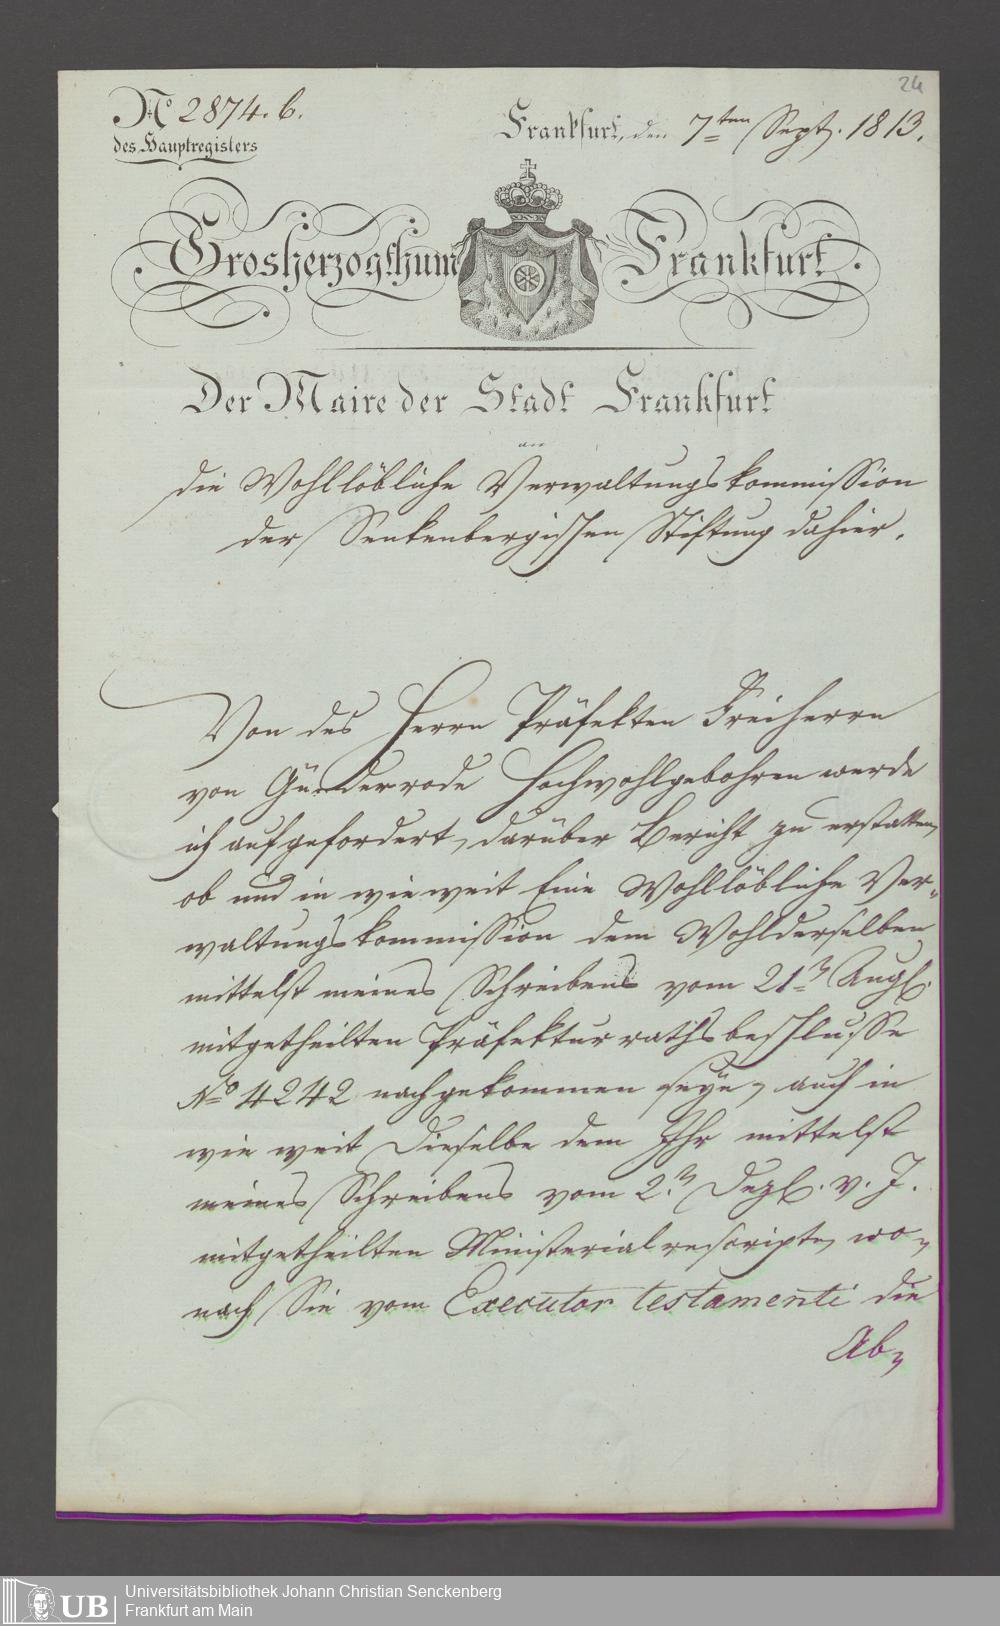 24
No 2874. b.
des Hauptregisters
Frankfurt, den 7ten Sept. 1813.
Grosherzogthum Frankfurt.
Der Maire der Stadt Frankfurt
an
die Wohllöbliche Verwaltungskommission
der Senkenbergischen Stiftung dahier.
Von des Herrn Präfekten Freiherrn
von Günderrode Hochwohlgebohren werde
ich aufgefordert, darüber Bericht zu erstatten,
ob und in wie weit Eine Wohllöbliche Ver-
waltungskommission dem Wohlderselben
mittelst meines Schreibens vom 21n Augst.
mitgetheilten Präfekturrathsbeschlusse
No 4242 nachgekommen seye, auch in
wie weit Dieselbe dem Ihr mittelst
meines Schreibens vom 2.n Dezb. v. J.
mitgetheilten Ministerialrescripte, wo-
nach Sie vom Executor testamenti die
Ab-
UB
Universitätsbibliothek Johann Christian Senckenberg
Frankfurt am Main